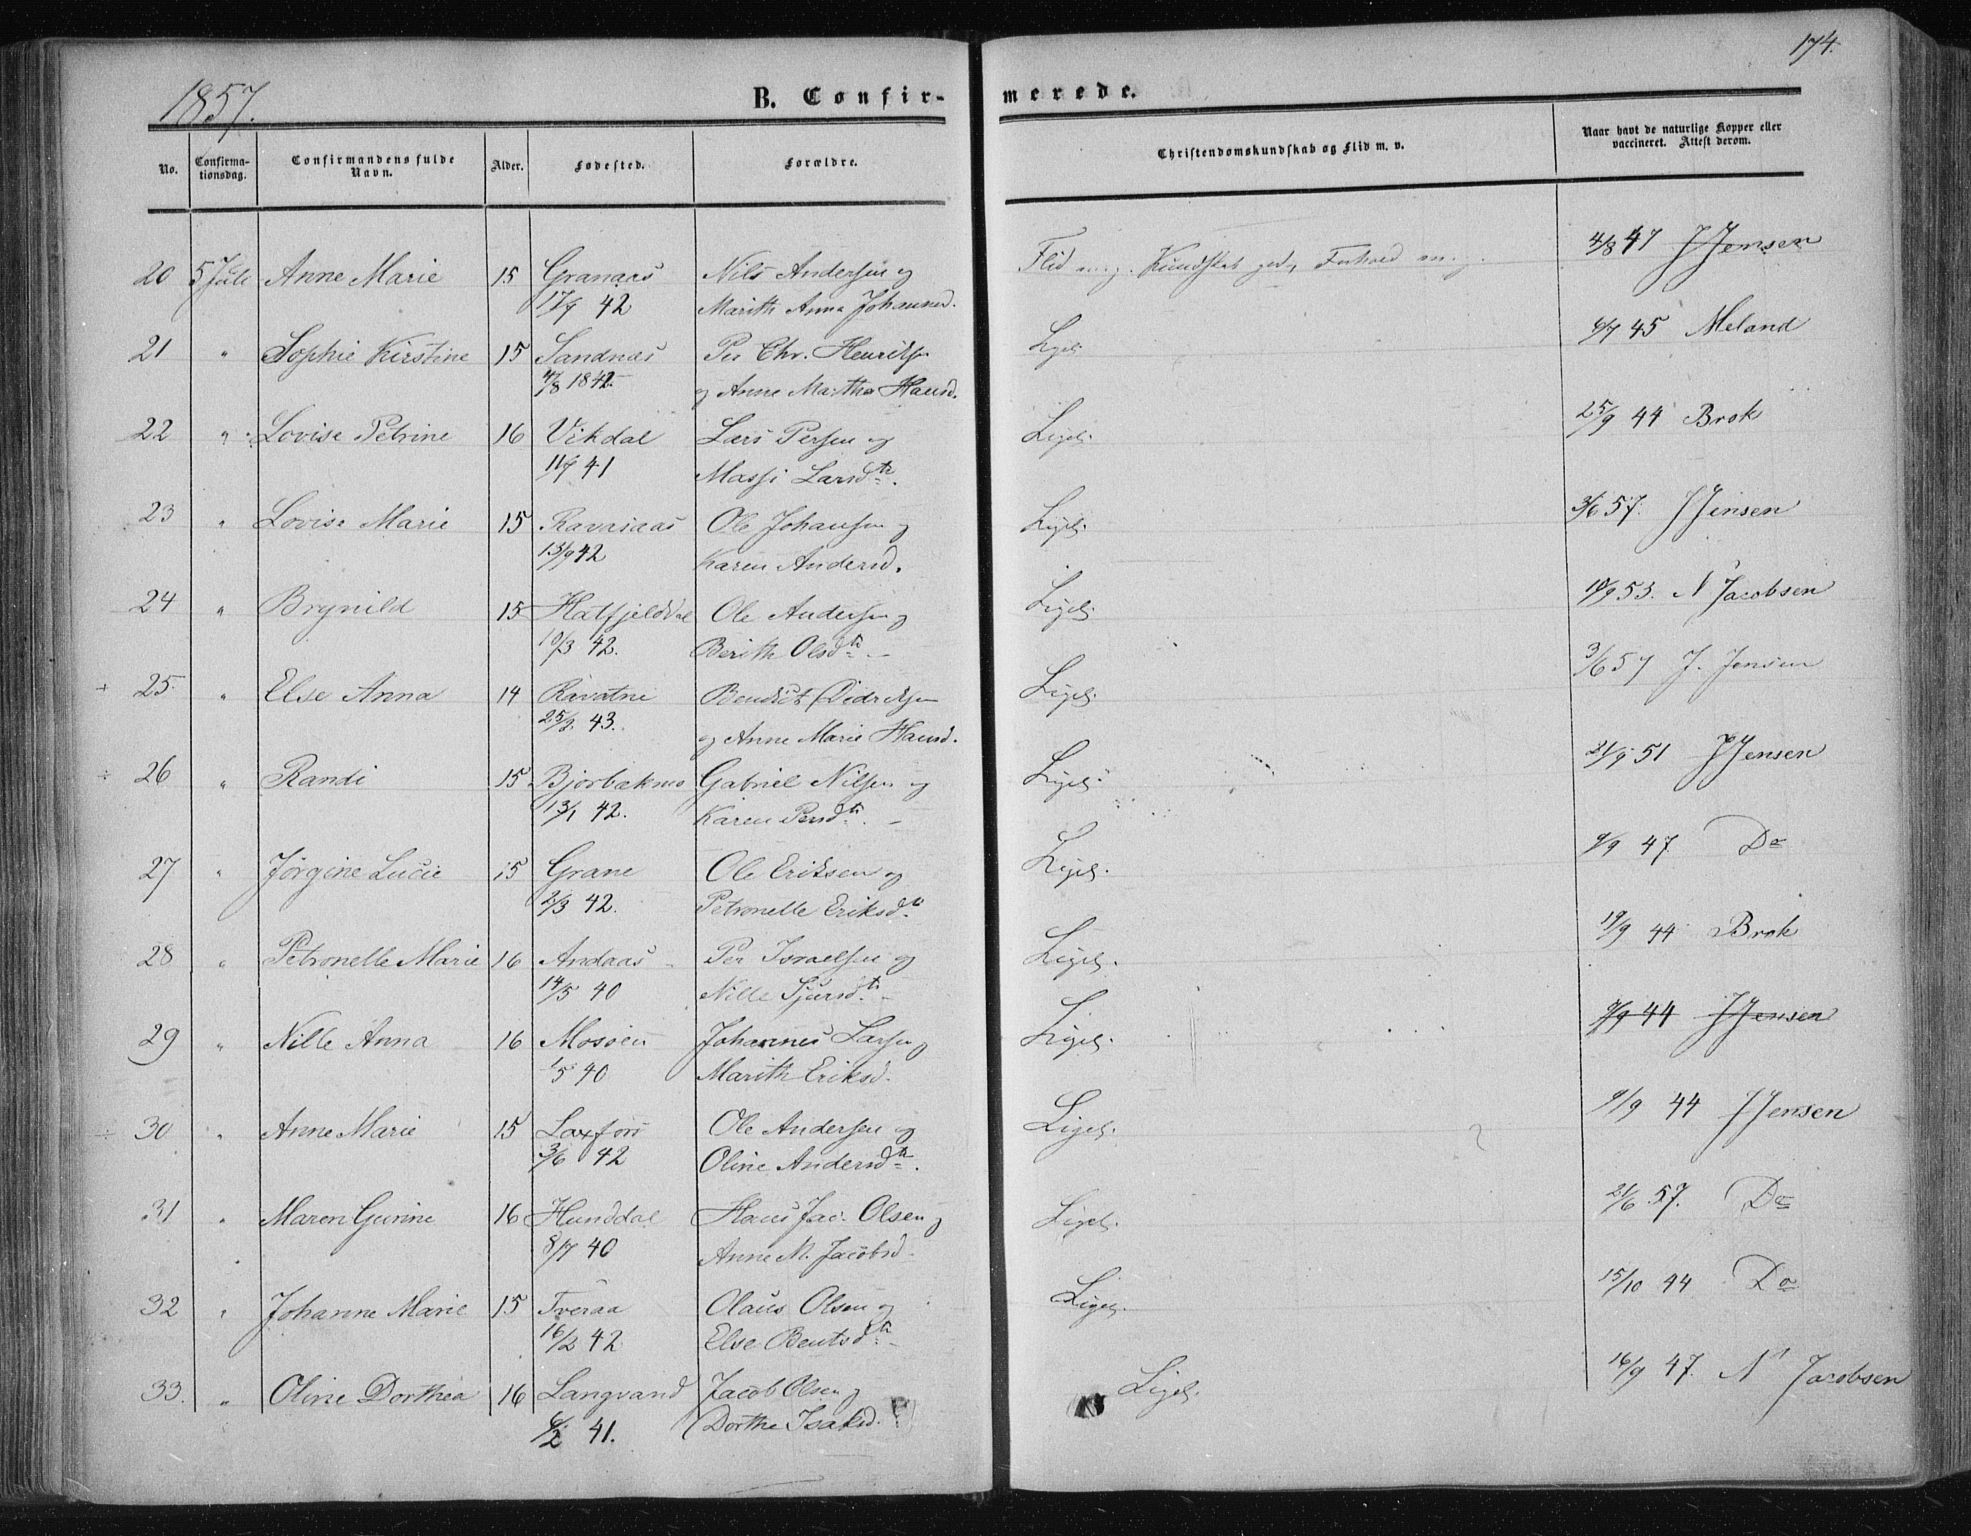 1857.
174.
B. Confir-merede.
No. Confirmationsdag. Confirmandens fulde Navn. Alder. Fødested. Forældre. Christendomskundskab og Flid m. v. Naar havt de naturlige Kopper eller vaccineret. Attest derom.
20 5 Juli Anne Marie 15 Granaas Nils Andersen og Flid m. g. Kundskab god, Forhold m. g. 4/8 47 J Jensen
17/9 42 Marith Anna Johannesd.
21 " Sophie Kirstine 15 Sandnas Per Chr. Henriks Ligel. 6/7 45 Meland
4/8 1842 og Anne Martha Hansd.
22 " Lovise Petrine 16 Vikdal Lars Persen og Ligel. 25/9 44 Brok
11/7 41 Massi Larsdtr.
23 " Lovise Marie 15 Ole Johansen og Ligel. 3/6 57. J Jensen
13/9 42 Karen Andersd.
24 " Brynild 15 Hatfjelddal Ole Andersen og Ligel. 53. N Jacobsen
10/3 42. Berith Olsdtr.
25. " Else Anna 14 Ravatne Bendict Didriksen Ligel. 3/6 57 J. Jensen
43. og Anne Marie Hansd.
26 " Randi 15 Bjorbakmo Gabriel Nilsen og Ligel. 21/9 51 J Jensen
13/1 42. Karen Persdtr.
27 " Jörgine Lucie 15 Grane Ole Eriksen og Ligel. 9/9 47 Do
2/3 42. Petronelle Eriksdtr
28 " Petronelle Marie 16 Andaas Per Israelsen og Ligel. 19/9 44 Brok
14/5 40 Nille Sjursdtr.
29 " Nille Anna 16 Mosöen Johannes Larsen og Ligel. 9/9 44 J Jensen
1/5 40 Marith Eriksd.
30 " Anne Marie 15 Laxfors Ole Andersen og Ligel. 9/9 44 J Jensen
3/6 42 Oline Andersdtr.
31 " Maren Gurine 16 Hunddal Hans Jac. Olsen og Ligel. 21/6 57. Do
8/7 40 Anne M. Jacobsd.
32 " Johanne Marie 15 Tveraa Olaus Olsen og Ligel. 15/10 44 Do
16/2 42 Else Bentsdtr
33. " Oline Dorthea 16 Langvand Jacob Olsen og Ligel. 16/9 47. N Jacobsen
6/2 41. Dorthe Isaksd.